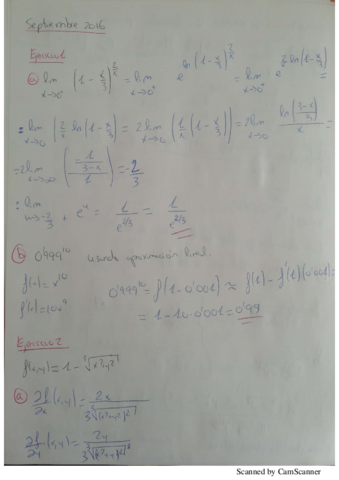 Septiembre 2016
Ejercicio 1
a) lim x→0⁺ (1 - x/3)^(2/x) = lim x→0⁺ e^(ln(1 - x/3)^(2/x)) = lim x→0⁺ e^(2/x ln(1 - x/3)) =
= lim x→0 (2/x ln(1 - x/3)) = 2 lim x→0 (1/x (1 - x/3)) = 2 lim x→0 ln((3-x)/3)/x =
= 2 lim ((-1/(3-x))/1) = -2/3
= lim u→-2/3 e^u = 1/e^(2/3) = 1/e^(2/3)
b) 0'999^10 usando aproximación lineal.
f(x) = x^10
f'(x) = 10x^9
0'999^10 = f(1 - 0'001) ≈ f(1) - f'(1)(0'001) =
= 1 - 10·0'001 = 0'99
Ejercicio 2
f(x,y) = 1 - ∛(x²+y²)
a) ∂f/∂x (x,y) = 2x / 3∛((x²+y²)²)
∂f/∂y (x,y) = 2y / 3∛((x²+y²)²)
Scanned by CamScanner